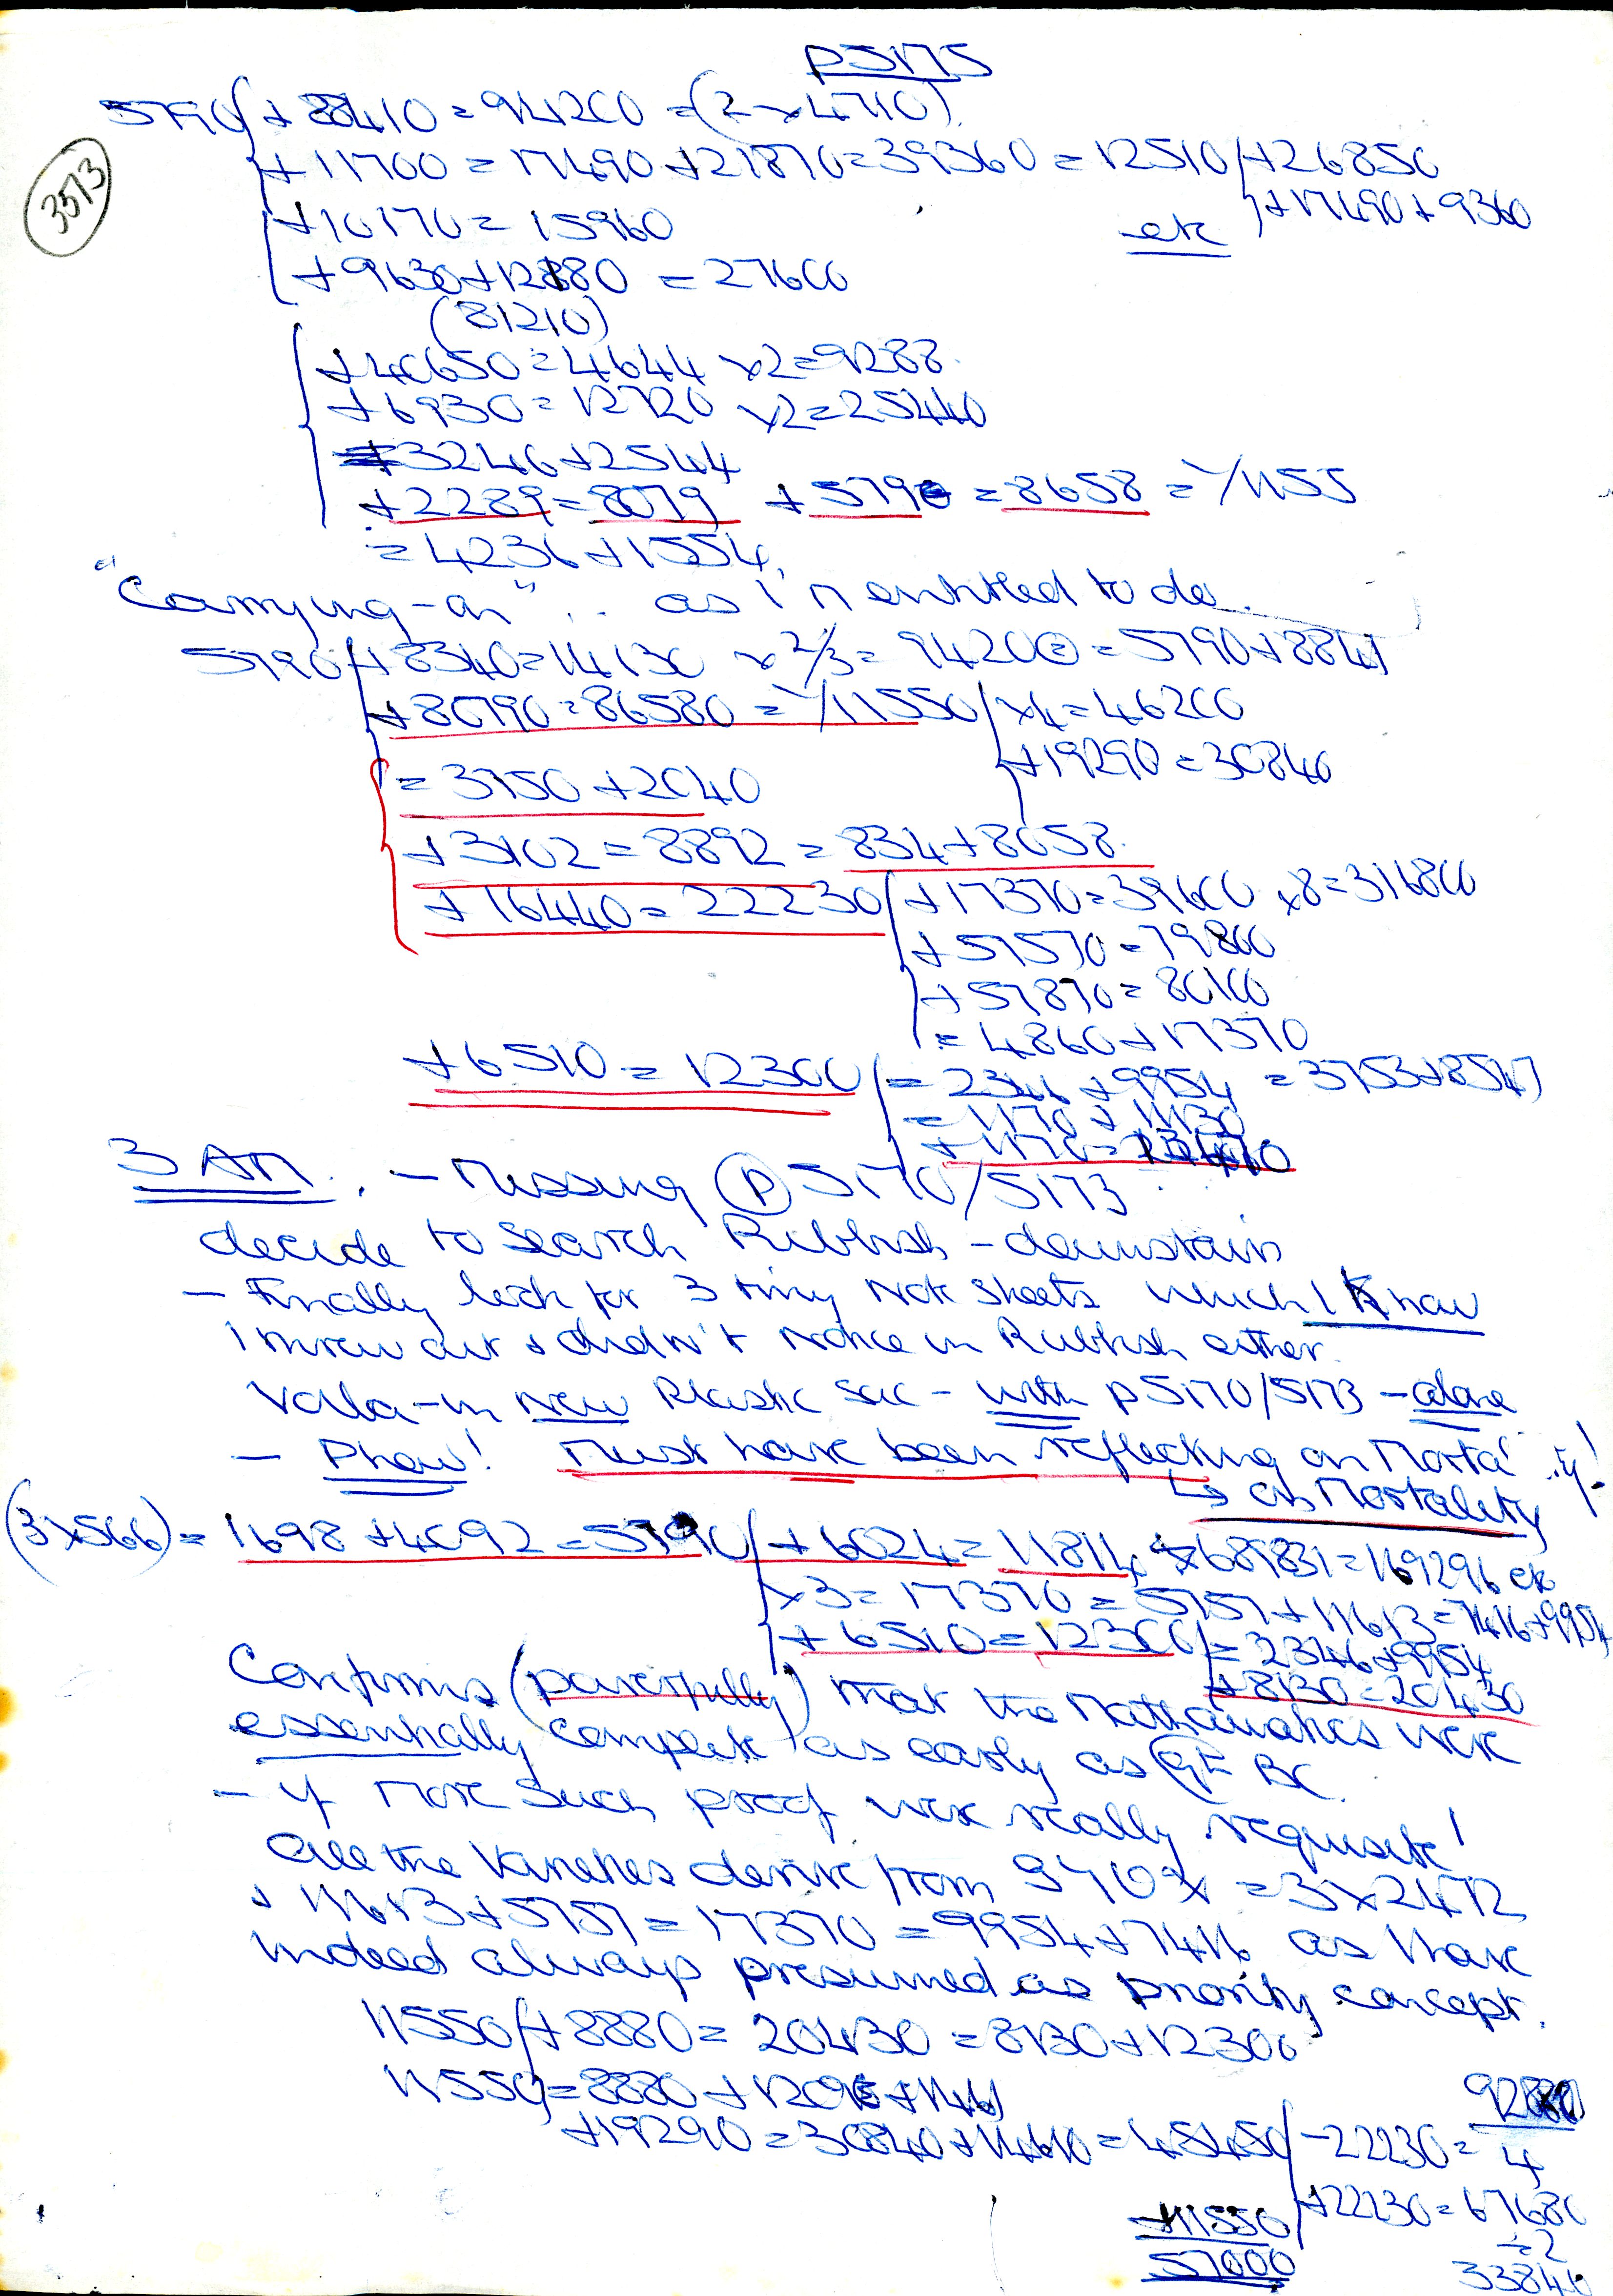 p5175
3573
5790 + 88410 = 94200 = (2 x 4710)
+ 11700 = 17490 + 21870 = 39360 = 12510 + 26850
+ 17490 + 9360
+ 10170 = 15960
etc
+ 9630 + 12180 = 27600
(81210)
+ 40650 = 4644 x2 = 9288
+ 6930 = 12720 x2 = 25440
+ 3246 + 2544
+ 2289 = 8079 + 579 = 8658 = 1/1155
= 4236 + 1554
"Carrying-on" .. as I'm entitled to do.
5790 + 8340 = 14130 x 2/3 = 9420 = 5790 + 8841
+ 80790 = 86580 = 1/11550 x4 = 46200
+ 19290 = 30840
= 3750 + 2040
+ 3102 = 8892 = 834 + 8058
+ 16440 = 22230 + 17370 = 39600 x8 = 316800
+ 57570 = 79800
+ 57870 = 80100
= 4860 + 17370
+ 6510 = 12300 = 2346 + 9954 = 3753 + 8547
= 1170 + 11130
+ 1170 = 13470
3 AM. - Missing (P) 5170/5173
decide to search Rubbish - downstairs
- Finally look for 3 tiny note sheets which I Know
I threw out & didn't notice in Rubbish either.
Voila - in new Plastic sac - with p5170/5173 - alone
- Phew! Must have been reflecting on Morta' ..ty!
↳ on Mortality
(3x566) = 1698 + 4092 = 5790 + 6024 = 11814 = 169296 etc
x3 = 17370 = 5757 + 11613 = 7416 + 9954
+ 6510 = 12300 = 2346 + 9954
+ 8130 = 20430
Confirms (powerfully) that the Mathematics were
essentially complete as early as BC
- if more such proof were really requisite!
All the varieties derive from = 3 x 2472
& 11613 + 5757 = 17370 = 9954 + 7416 as I have
indeed always presumed as priority concept.
11550 + 8880 = 20430 = 8130 + 12300
11550 = 8880 +
+ 19290 = 30840 + 14610 = 45450 - 22230 = 92880/4
+ 22230 = 67680
÷2
33840
+11550
57000